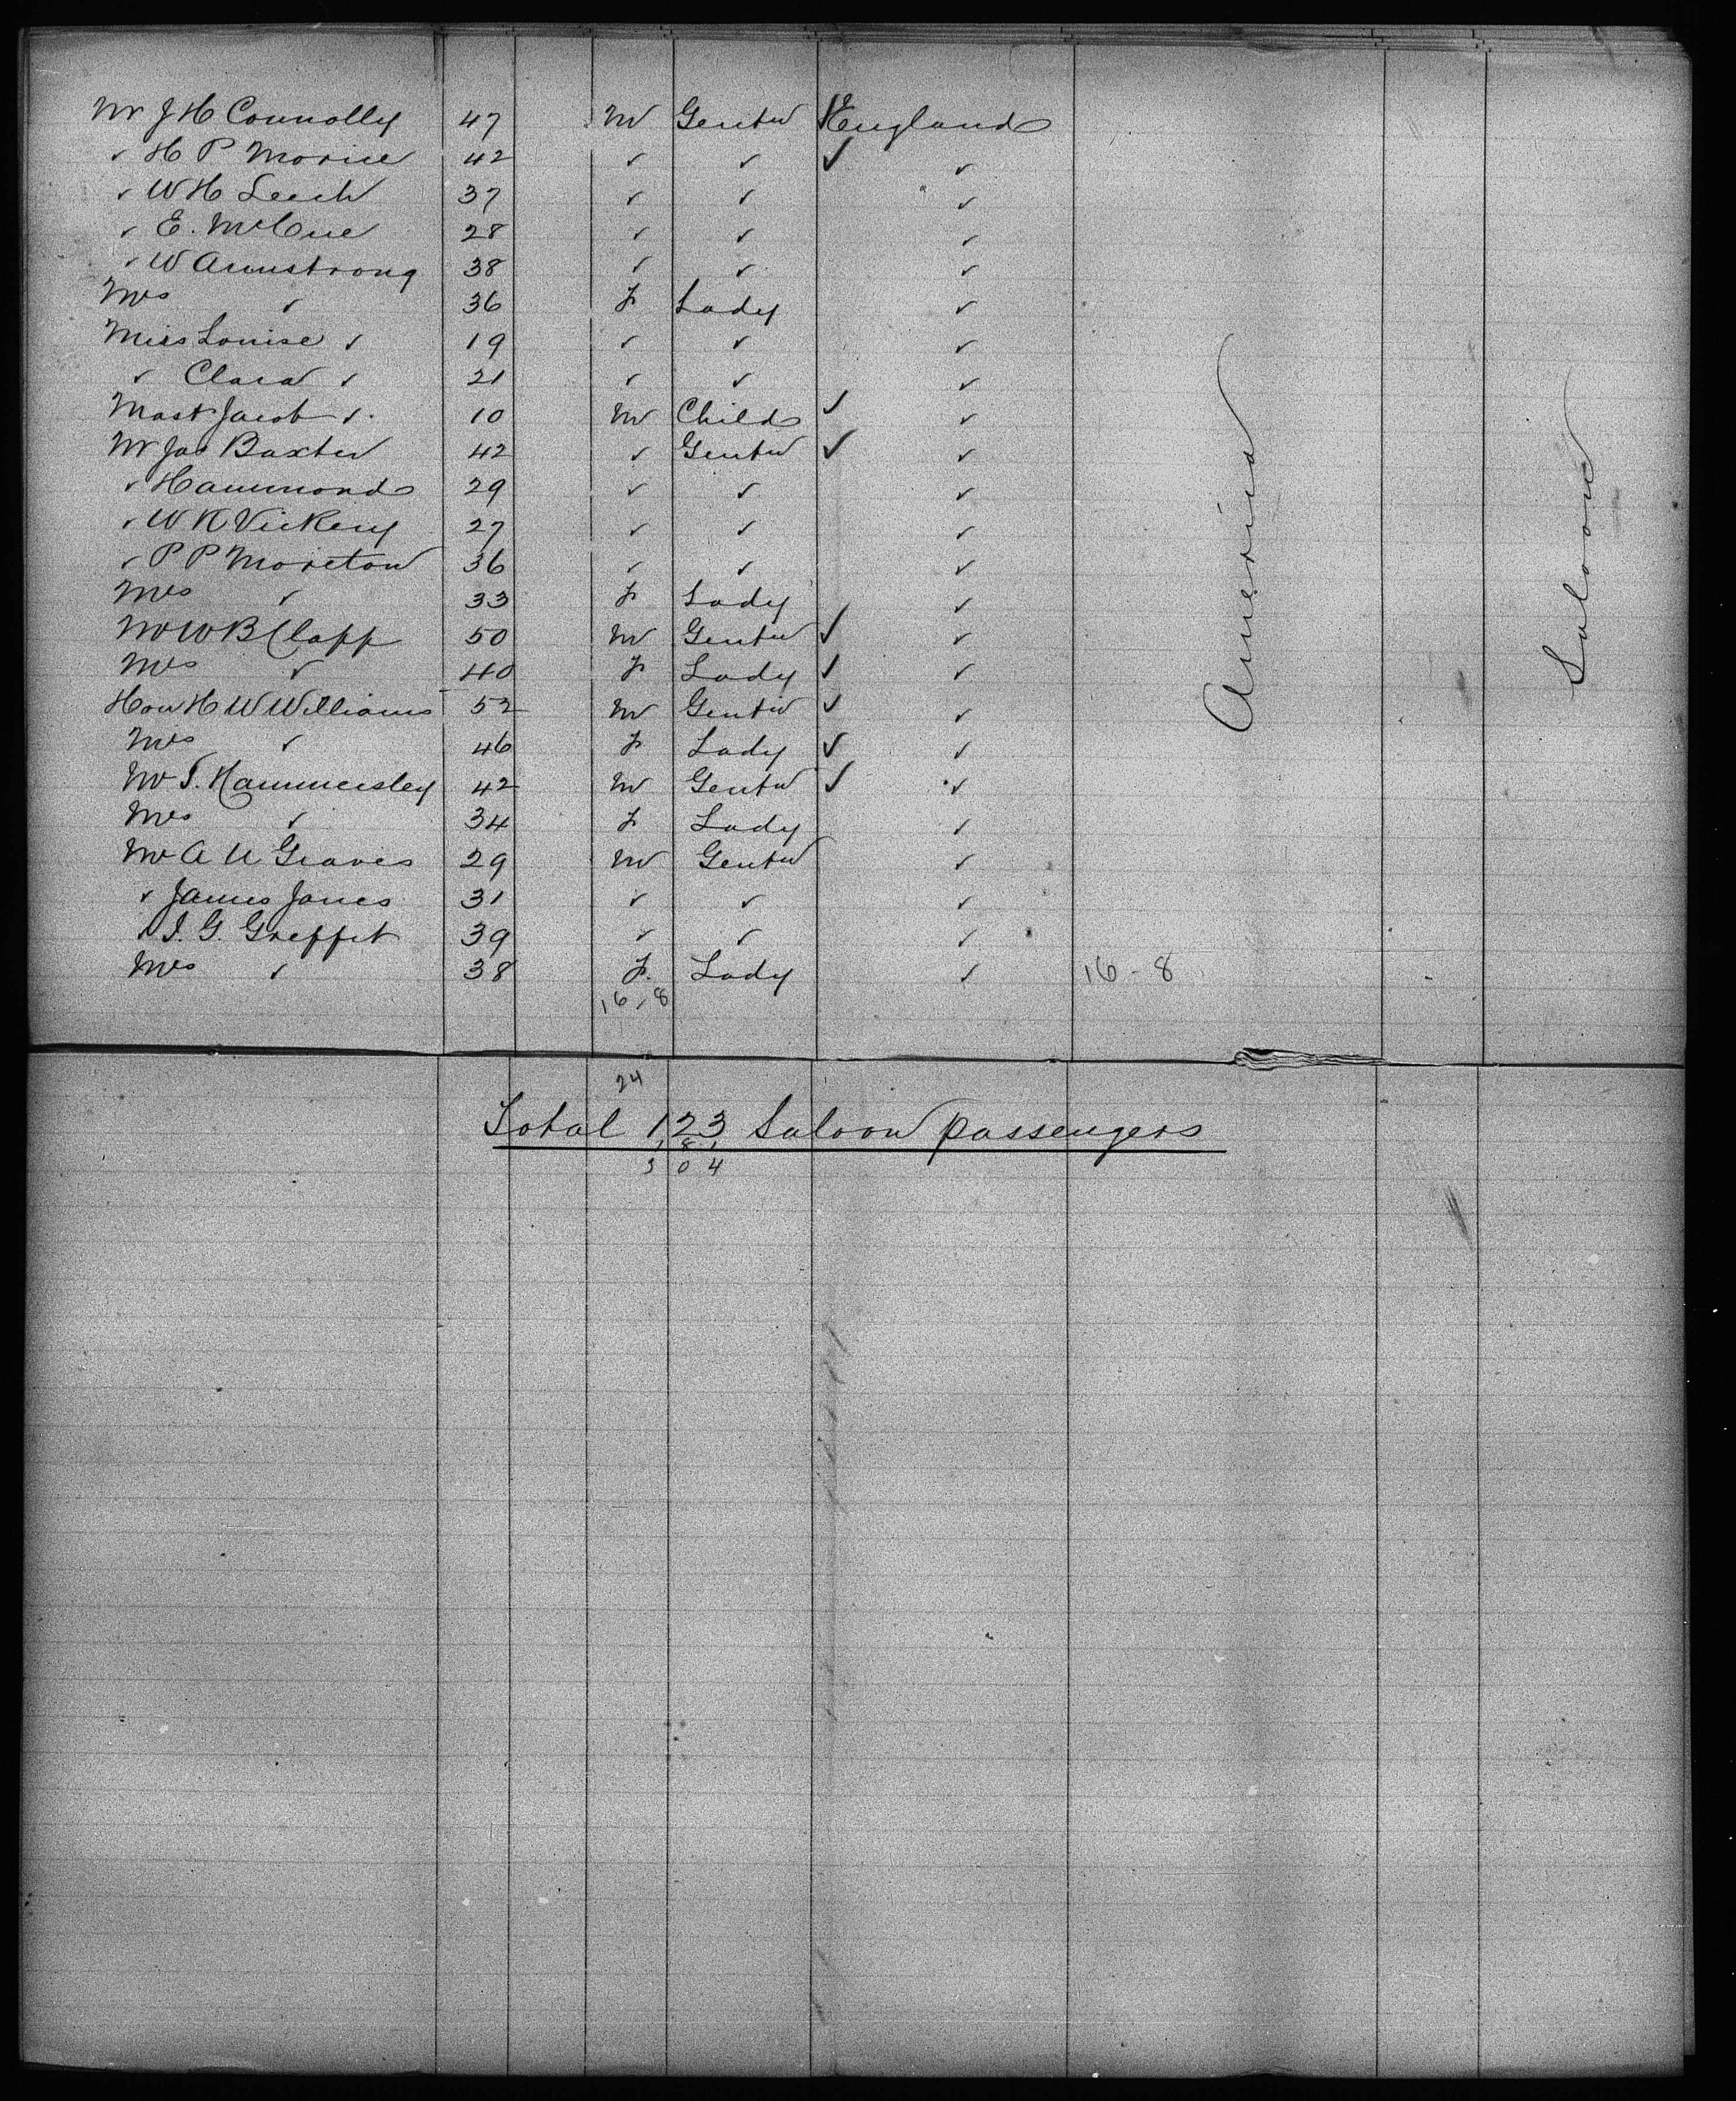 Mr J H Connolly 47 M Gentn England
✓ H P Morice 42 ✓ ✓ ✓ ✓
✓ W H Leech 37 ✓ ✓ ✓
✓ E. McCue 28 ✓ ✓ ✓
✓ W Armstrong 38 ✓ ✓ ✓
Mrs ✓ 36 F Lady ✓
Miss Louise ✓ 19 ✓ ✓ ✓
✓ Clara ✓ 21 ✓ ✓ ✓
Mast Jacob ✓ 10 M Child ✓ ✓
Mr Jas Baxter 42 ✓ Gentn ✓ ✓
✓ Hammond 29 ✓ ✓ ✓
✓ W K Vickery 27 ✓ ✓ ✓
✓ P P Moreton 36 ✓ ✓ ✓
Mrs ✓ 33 F Lady ✓
Mr W B Clapp 50 M Gentn ✓ ✓
Mrs ✓ 40 F Lady ✓ ✓
Hon H W Williams 52 M Gentn ✓ ✓
Mrs ✓ 46 F Lady ✓ ✓
Mr S. Hammersley 42 M Gentn ✓ ✓
Mrs ✓ 34 F Lady ✓
Mr A U Graves 29 M Gentn ✓
✓ James Jones 31 ✓ ✓ ✓
✓ I. G. Greffit 39 ✓ ✓ ✓
Mrs ✓ 38 F. Lady ✓ 16-8
16-8
America
Saloon
24
Total 123 Saloon passengers
181
304